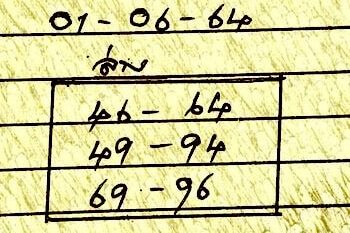 01 - 06 - 64
ล่าง
46 - 64
49 - 94
69 - 96